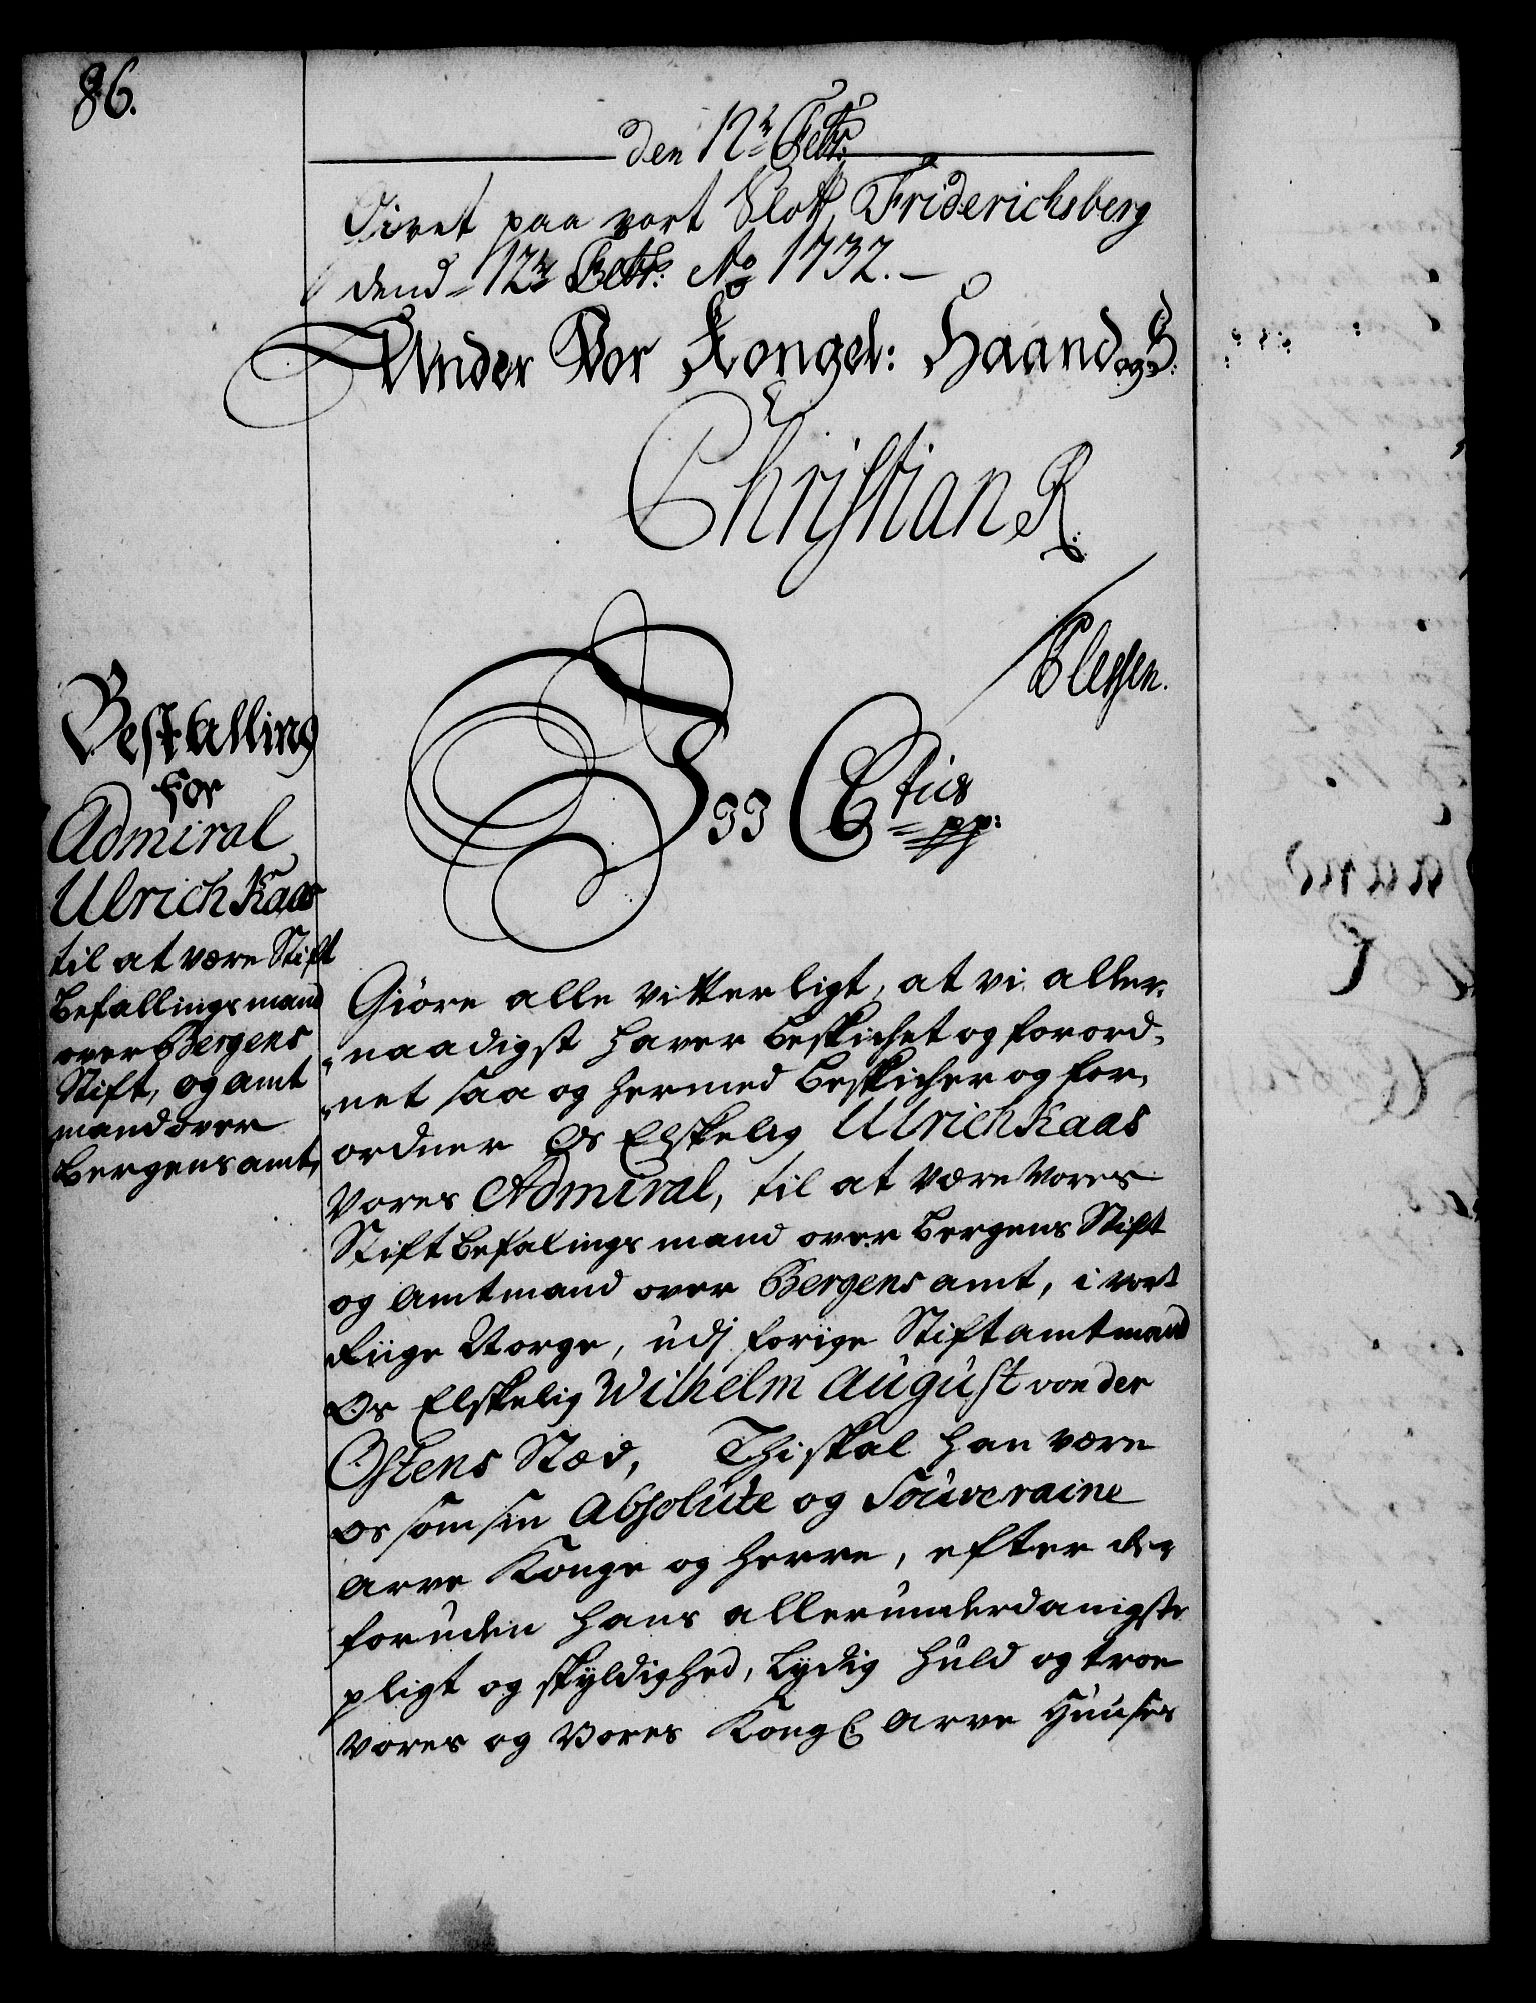 86.
den 12te Febr:
Givet paa vort Slott Friderichsberg
dend 12te Febr: Ao 1732.
Under Vor Kongel: Haand og S:
Christian R.
Plessen.
Bestalling
for
Admiral
Ulrich Kaas
til at være Stift
Befallingsmand
over Bergens
Stift, og amt
mand over
Bergens amt,
C6tus
pp:
Giøre alle vitterligt, at vi aller-
naadigst haver beskichet og forord-
net saa og hermed beskicher og for-
ordner Os Elskelig Ulrich Kaas
Vores Admiral, til at være Vores
Stift befalings mand over Bergens Stift
og Amtmand over Bergens amt, i vort
Riige Norge, udj forige Stiftamtmand
Os Elskelig Wilhelm August von der
Ostens Stæd, Thi skal han være
os som sin Absolute og Souveraine
Arve Konge og Herre, efter den
foruden hans allerunderdanigste
pligt og skyldighed, Lydig huld og troe
Vores og Vores Kongl. Arve Huuses